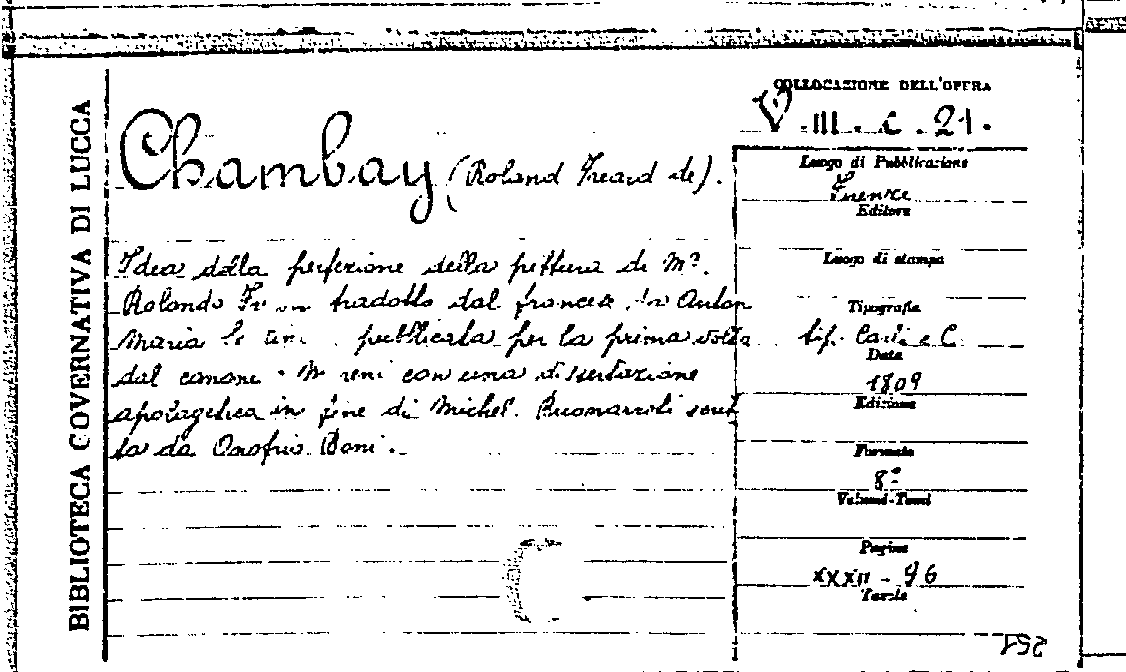 BIBLIOTECA GOVERNATIVA DI LUCCA
COLLOCAZIONE DELL'OPERA
V. III. C. 21.
Chambay (Roland Freard de).
Idea della perfezione della pittura di Mr.
Rolando tradotta dal francese da Anton
Maria pubblicata per la prima volta
dal canone con una dissertazione
apologetica in fine di Michel. Buonarroti scrit
ta da Onofrio Boni.
Luogo di Pubblicazione
Firenze
Editore
Luogo di stampa
Tipografia
tip. Carli e C.
Data
1809
Edizione
Formato
8°
Volumi-Tomi
Pagine
XXXII - 96
Tavole
251